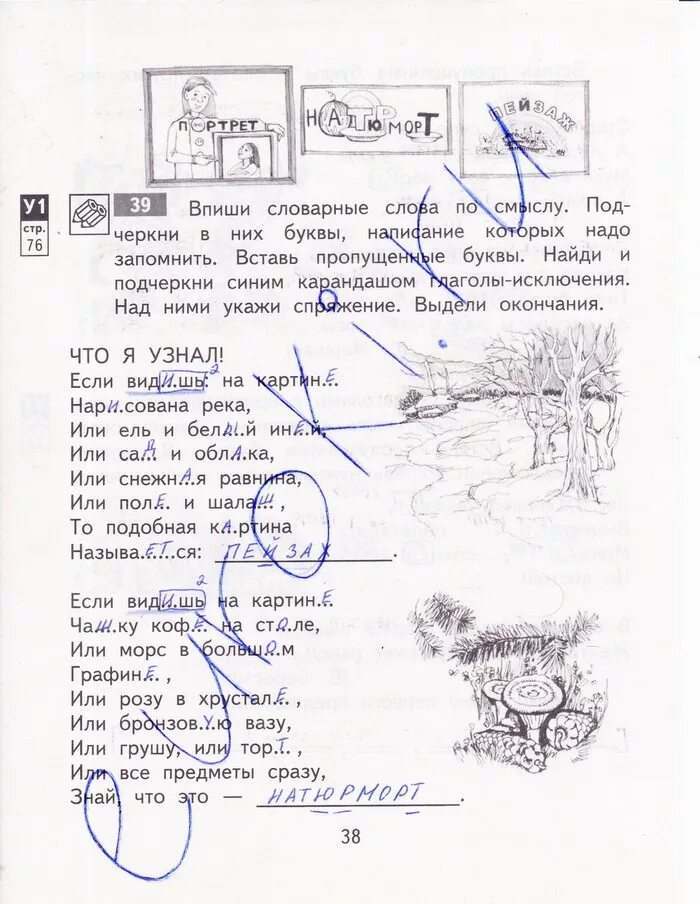 ПОРТРЕТ
НАТЮРМОРТ
ПЕЙЗАЖ
У1
стр.
76
39 Впиши словарные слова по смыслу. Под-
черкни в них буквы, написание которых надо
запомнить. Вставь пропущенные буквы. Найди и
подчеркни синим карандашом глаголы-исключения.
Над ними укажи спряжение. Выдели окончания.
ЧТО Я УЗНАЛ!
2
Если вид..И..шь: на картин..Е.
Нар..И..сована река,
Или ель и бел..Ы..й ин..Е..й,
Или са..Д и обл..А..ка,
Или снежн..А..я равнина,
Или пол..Е. и шала..Ш. ,
То подобная к..А..ртина
Называ..ЕТ..ся: ПЕЙЗАЖ.
2
Если вид..И..шь на картин..Е.
Ча..Ш..ку коф..Е. на ст..О..ле,
Или морс в больш..О..м
Графин..Е. ,
Или розу в хрустал..Е. ,
Или бронзов..У..ю вазу,
Или грушу, или тор..Т. ,
Или все предметы сразу,
Знай, что это — НАТЮРМОРТ.
38